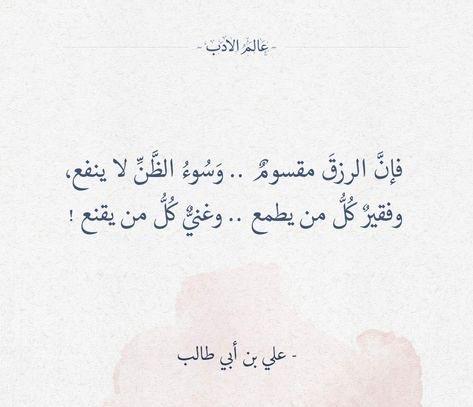 - عالم الادب -
فإنَّ الرزقَ مقسومٌ .. وَسُوءُ الظَّنِّ لا ينفع،
وفقيرٌ كُلُّ من يطمع .. وغنيٌّ كُلُّ من يقنع !
- علي بن أبي طالب